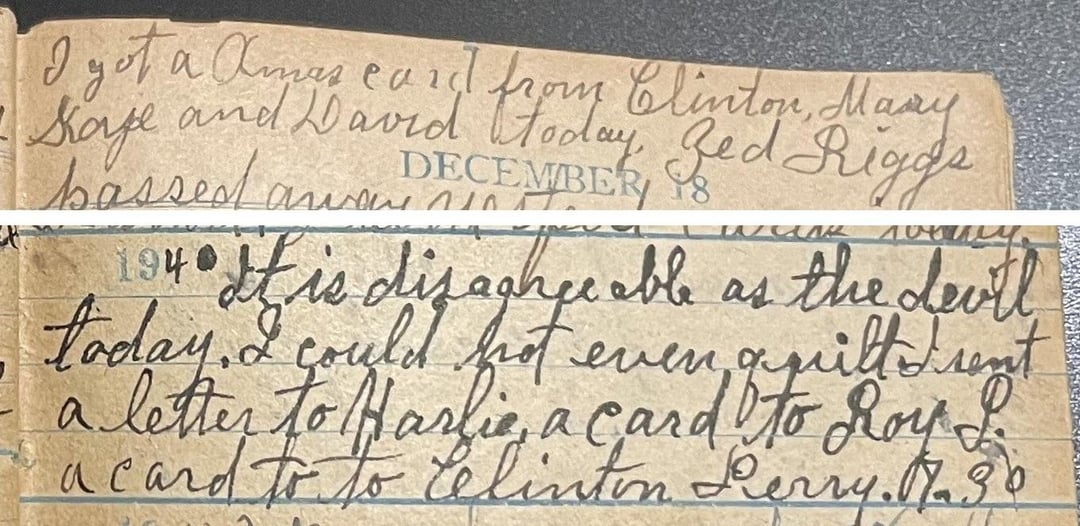 I got a Xmas card from Clinton, Mary
Kaye and David today. Zed Riggs
DECEMBER 18
passed away
1940 It is disagreeable as the devil
today. I could not even quilt I sent
a letter to Harlie, a card to Roy
a card to to Clinton Perry.